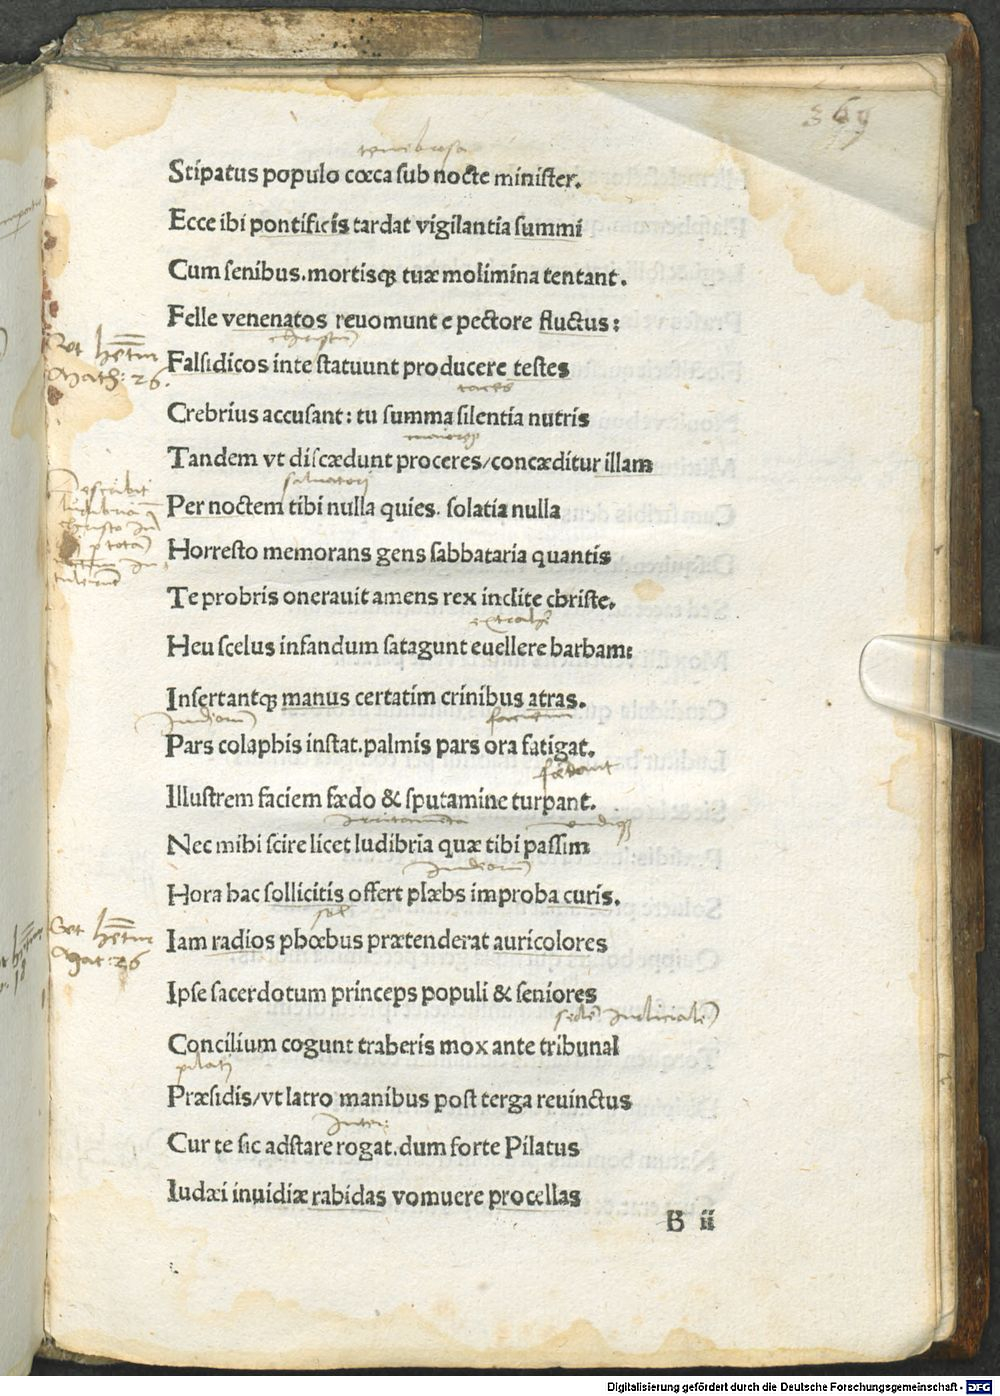 369
tenebrosa
Stipatus populo cœca sub nocte minister.
Ecce ibi pontificis tardat vigilantia summi
Cum senibus. mortisqꝫ tuæ molimina tentant.
Felle venenatos reuomunt e pectore fluctus:
Falsidicos inte statuunt producere testes
Math: 26.
Crebrius accusant: tu summa silentia nutris
Tandem vt discædunt proceres/concæditur illam
saluatori
Per noctem tibi nulla quies. solatia nulla
Horresto memorans gens sabbataria quantis
Te probris onerauit amens rex inclite christe.
Heu scelus infandum satagunt euellere barbam:
Insertantqꝫ manus certatim crinibus atras.
Pars colaphis instat. palmis pars ora fatigat.
fœdant
Illustrem faciem fædo & sputamine turpant.
Nec mihi scire licet ludibria quæ tibi passim
Hora hac sollicitis offert plæbs improba curis.
sol
Iam radios phœbus prætenderat auricolores
Mat: 26
Ipse sacerdotum princeps populi & seniores
Concilium cogunt traheris mox ante tribunal
Præsidis/vt latro manibus post terga reuinctus
Cur te sic adstare rogat. dum forte Pilatus
Iudæi inuidiæ rabidas vomuere procellas
B ii
Digitalisierung gefördert durch die Deutsche Forschungsgemeinschaft - DFG